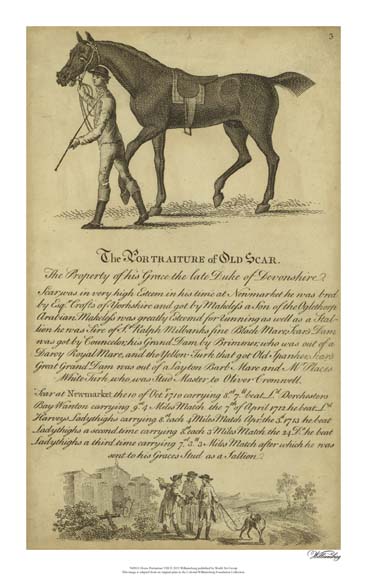 3
The Portraiture of Old Scar.
The Property of his Grace the late Duke of Devonshire.
Scar, was in very high Esteem in his time at Newmarket he was bred
by Esq.r Crofts of Yorkshire and got by Makeless a Son of the Oglethorp
Arabian, Makeless was greatly Esteem'd for running as well as a Stal-
lion he was Sire of S.r Ralph Milbanks fine Black Mare, Scars Dam
was got by Councelor, his Grand Dam by Brimmer, who was out of a
Darcy Royal Mare, and the Yellow-Turk that got Old Spanker, Scars
Great Grand Dam was out of a Layton Barb Mare and Mr. Places
White Turk, who was Stud Master to Oliver Cromwell.
Scar at Newmarket the 10 of Oct.r 1710 carrying 8.st 7.lb beat L.d Dorchesters
Bay Wanton carrying 9.st 4 Miles Match the 7.th of April 1712 he beat L.d
Harveys Ladythighs carrying 8.st each 4 Miles Match Apr. the 5.th 1713 he beat
Ladythighs a second time carrying 8.st each 3 Miles Match the 24.th D.o he beat
Ladythighs a third time carrying 7.st 3.lb 3 Miles Match after which he was
sent to his Graces Stud as a Stallion.
Williamsburg